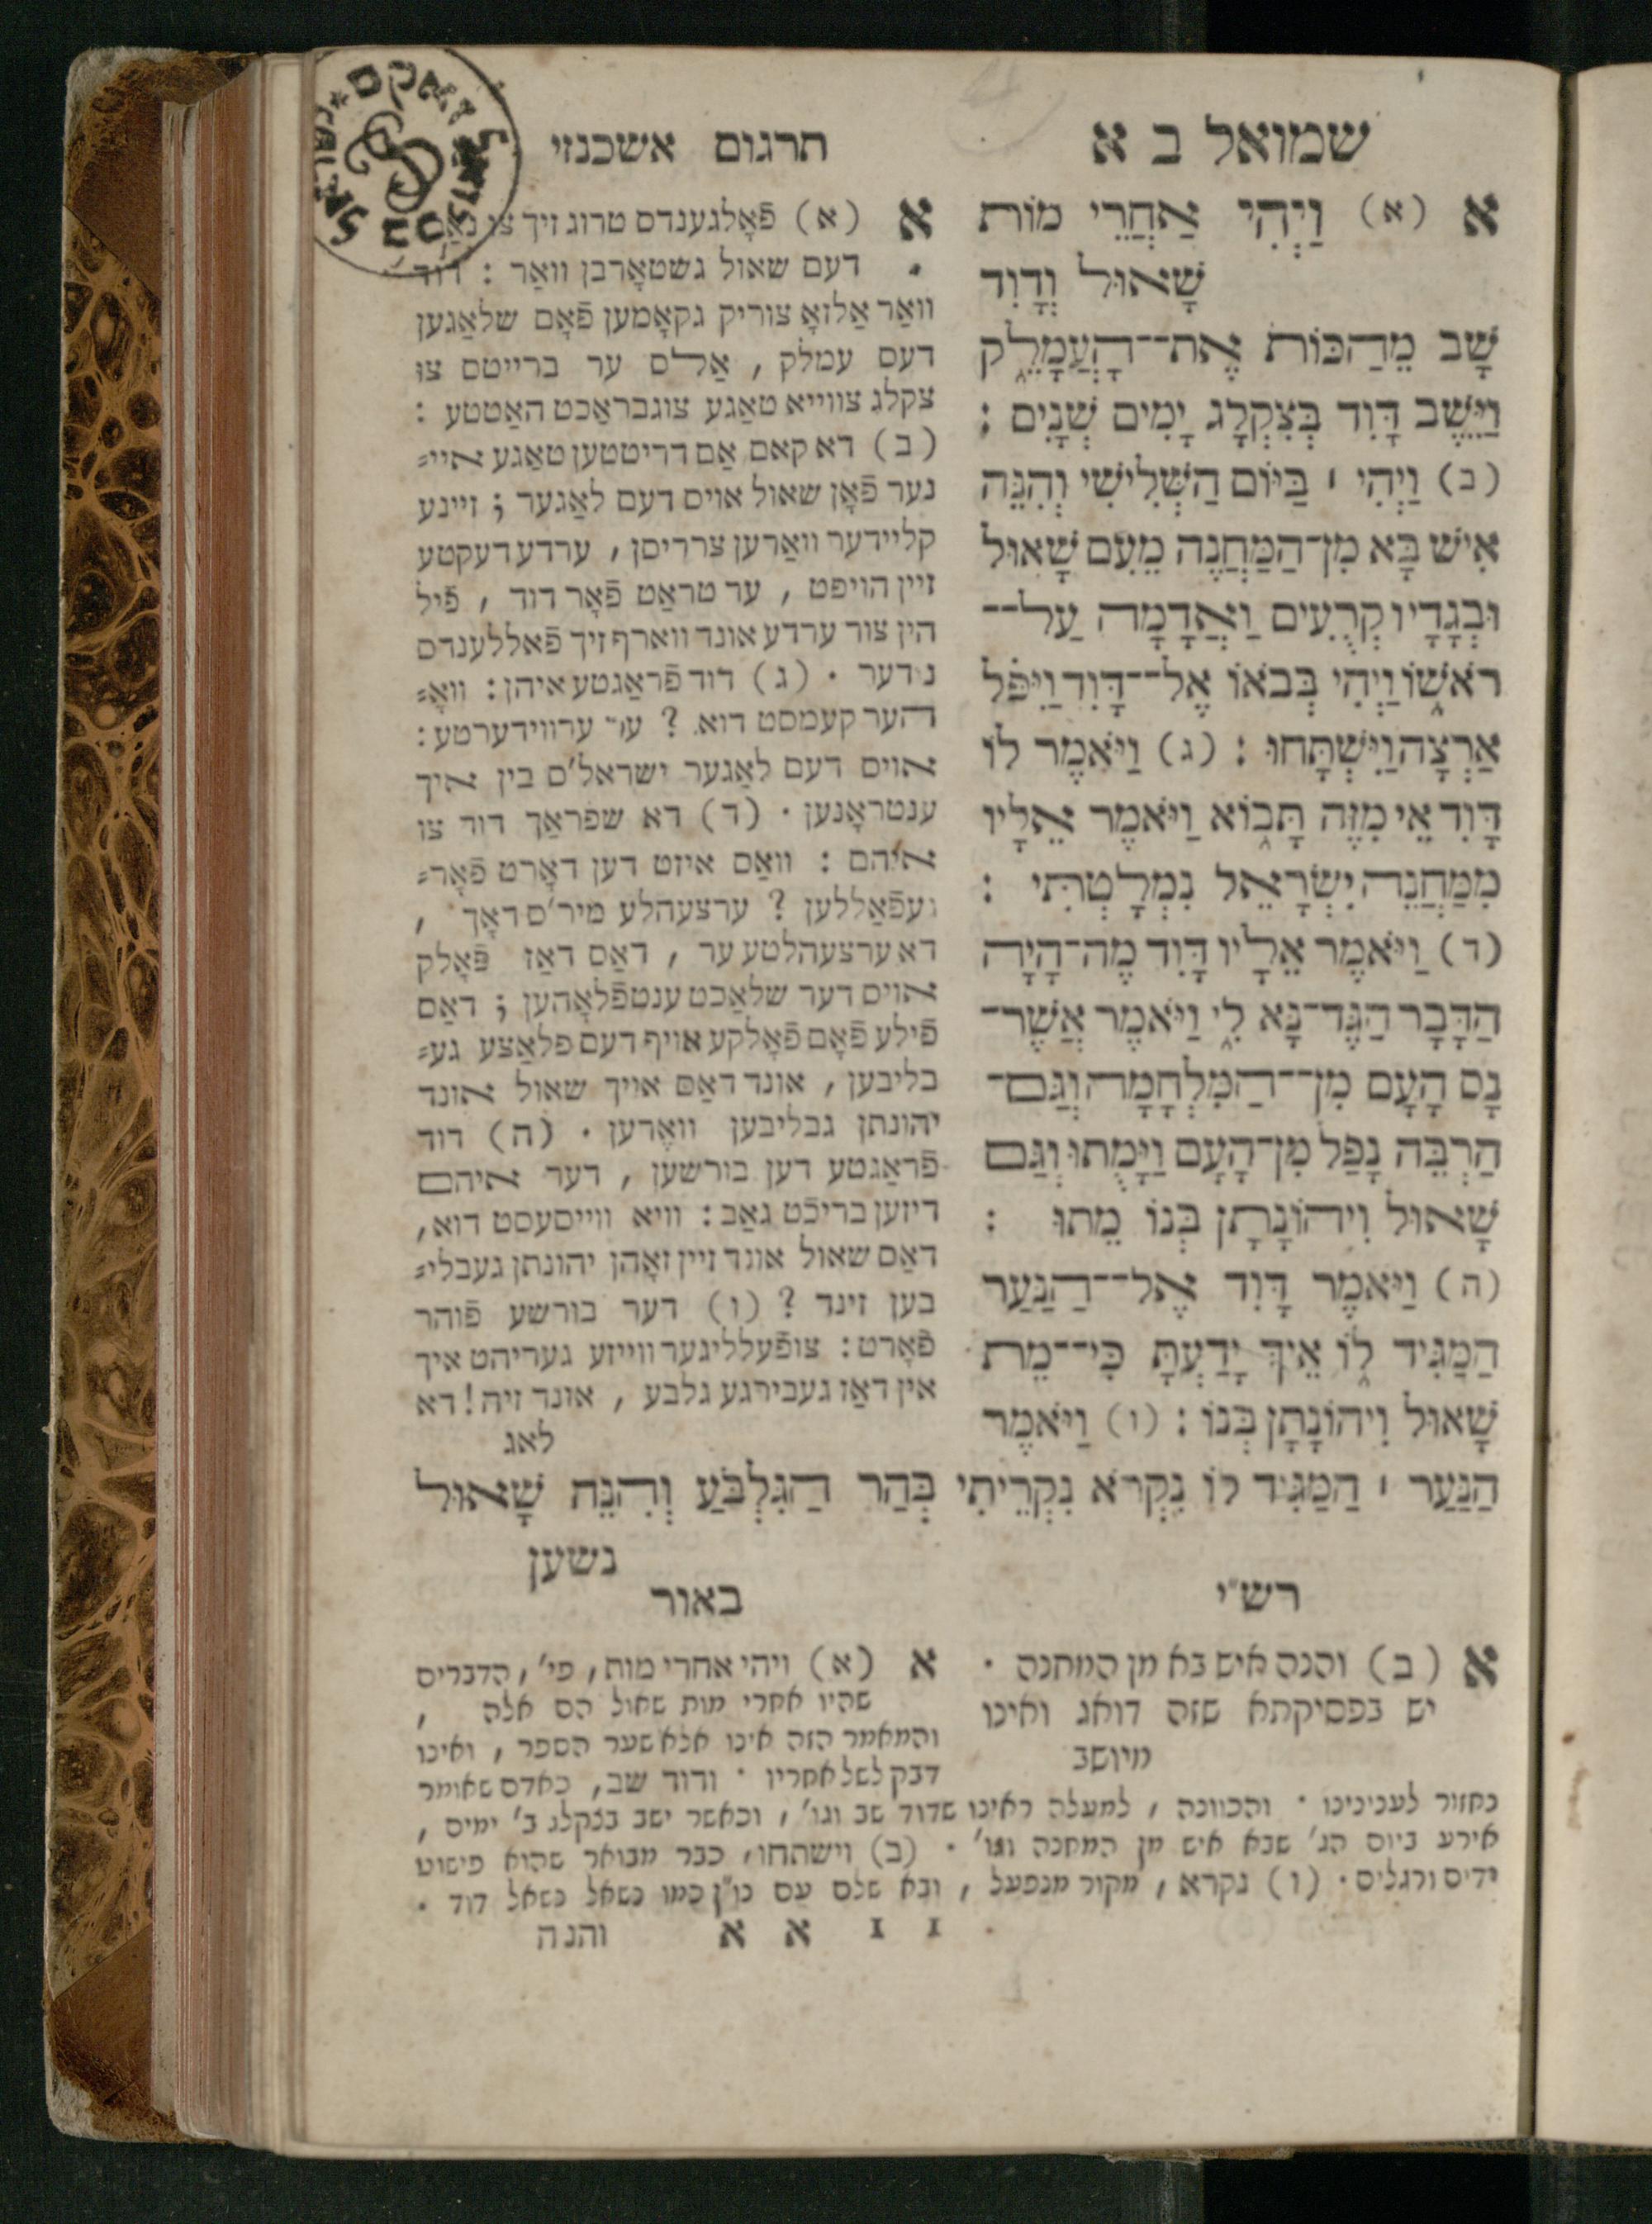 שמואל ב א
תרגום אשכנזי
א (א) וַיְהִי אַחֲרֵי מוֹת
שָׁאוּל וְדָוִד
שָׁב מֵהַכּוֹת אֶת־־הָעֲמָלֵק
וַיֵּשֶׁב דָּוִד בְּצִקְלָג יָמִים שְׁנָיִם :
(ב) וַיְהִי ׀ בַּיּוֹם הַשְּׁלִישִׁי וְהִנֵּה
אִישׁ בָּא מִן־הַמַּחֲנֶה מֵעִם שָׁאוּל
וּבְגָדָיו קְרֻעִים וַאֲדָמָה עַל־־
רֹאשׁוֹ וַיְהִי בְּבֹאוֹ אֶל־־דָּוִד וַיִּפֹּל
אַרְצָה וַיִּשְׁתָּחוּ : (ג) וַיֹּאמֶר לוֹ
דָּוִד אֵי מִזֶּה תָּבוֹא וַיֹּאמֶר אֵלָיו
מִמַּחֲנֵה יִשְׂרָאֵל נִמְלָטְתִּי :
(ד) וַיֹּאמֶר אֵלָיו דָּוִד מֶה־הָיָה
הַדָּבָר הַגֶּד־נָא לִי וַיֹּאמֶר אֲשֶׁר־
נָס הָעָם מִן־־הַמִּלְחָמָה וְגַם־
הַרְבֵּה נָפַל מִן־הָעָם וַיָּמֻתוּ וְגַם
שָׁאוּל וִיהוֹנָתָן בְּנוֹ מֵתוּ :
(ה) וַיֹּאמֶר דָּוִד אֶל־־הַנַּעַר
הַמַּגִּיד לוֹ אֵיךְ יָדַעְתָּ כִּי־־מֵת
שָׁאוּל וִיהוֹנָתָן בְּנוֹ : (ו) וַיֹּאמֶר
הַנַּעַר ׀ הַמַּגִּיד לוֹ נִקְרֹא נִקְרֵיתִי בְּהַר הַגִּלְבֹּעַ וְהִנֵּה שָׁאוּל
נשען
א (א) פֿאָלגענדס טרוג זיך צו
דעם שאול גשטאָרבן וואַר : דוד
וואַר אַלזאָ צוריק גקאָמען פֿאָם שלאַגען
דעם עמלק , אַלס ער ברייטס צו
צקלג צווייא טאַגע צוגבראַכט האַטטע :
(ב) דא קאם אַם דריטטען טאַגע איי⸗
נער פֿאָן שאול אויס דעם לאַגער ; זיינע
קליידער וואַרען צרריסן , ערדע דעקטע
זיין הויפט , ער טראַט פֿאָר דוד , פֿיל
הין צור ערדע אונד ווארף זיך פֿאללענדס
נידער · (ג) דוד פֿראַגטע איהן : וואָ⸗
הער קעמסט דוא ? ער ערווידערטע :
אויס דעם לאַגער ישראל'ס בין איך
ענטראָנען · (ד) דא שפראַך דוד צו
איהם : וואַס איזט דען דאָרט פֿאָר⸗
געפֿאַללען ? ערצעהלע מיר'ס דאָך ,
דא ערצעהלטע ער , דאַס דאַז פֿאָלק
אויס דער שלאַכט ענטפֿלאָהען ; דאַס
פֿילע פֿאָם פֿאָלקע אויף דעם פלאַצע גע⸗
בליבען , אונד דאַס אויך שאול אונד
יהונתן גבליבען וואָרען · (ה) דוד
פֿראַגטע דען בורשען , דער איהם
דיזען בריכט גאַב : וויא ווייסעסט דוא,
דאַס שאול אונד זיין זאָהן יהונתן געבלי⸗
בען זינד ? (ו) דער בורשע פֿוהר
פֿאָרט : צופֿעלליגער ווייזע געריהט איך
אין דאַז געבירגע גלבע , אונד זיה ! דא
לאג
רש״י
א (ב) והנה איש בא מן המחנה ·
יש בפסיקתא שזה דואג ואינו
מיושב
באור
א (א) ויהי אחרי מות, פי', הדברים
שהיו אחרי מות שאול הם אלה ,
והמאמר הזה אינו אלא שער הספר , ואינו
דבק לשל אחריו · ודוד שב, כאדם שאומר
נחזור לעניננו · והכוונה , למעלה ראינו שדוד שב וגו' , וכאשר ישב בצקלג ב' ימים ,
אירע ביום הג' שבא איש מן המחנה וגו' · (ב) וישתחו, כבר מבואר שהוא פישוט
ידים ורגלים · (ו) נקרא , מקור מנפעל , ובא שלם עם נו״ן כמו נשאל נשאל דוד .
1 1 א א והנה